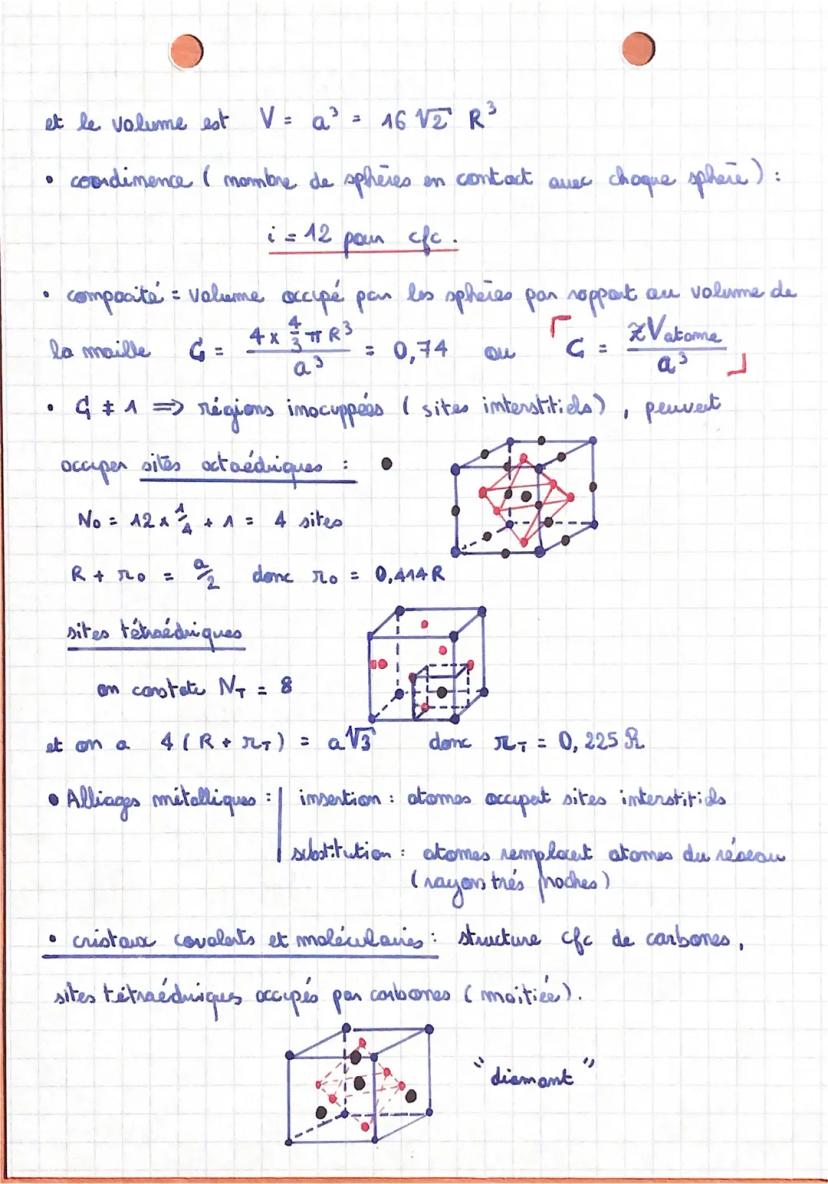 et le volume est V = a³ = 16 √2 R³
• coordinence ( nombre de sphères en contact avec chaque sphère ) :
i = 12 pour cfc .
• compacité = volume occupé par les sphères par rapport au volume de
la maille C = (4 x 4/3 π R³)/a³ = 0,74 ou C = (z Vatome)/a³
• C ≠ 1 ⟹ régions inocuppées ( sites interstitiels ) , peuvent
occuper sites octaédriques : ●
No = 12 x 1/4 + 1 = 4 sites
R + ro = a/2 donc ro = 0,414 R
sites tétraédriques
on constate NT = 8
et on a 4 ( R + rT ) = a√3 donc rT = 0,225 R
• Alliages métalliques : insertion : atomes occupent sites interstitiels
substitution : atomes remplacent atomes du réseau
( rayons très proches )
• cristaux covalents et moléculaires : structure cfc de carbones ,
sites tétraédriques occupés par carbones ( moitiée ).
"diamant"